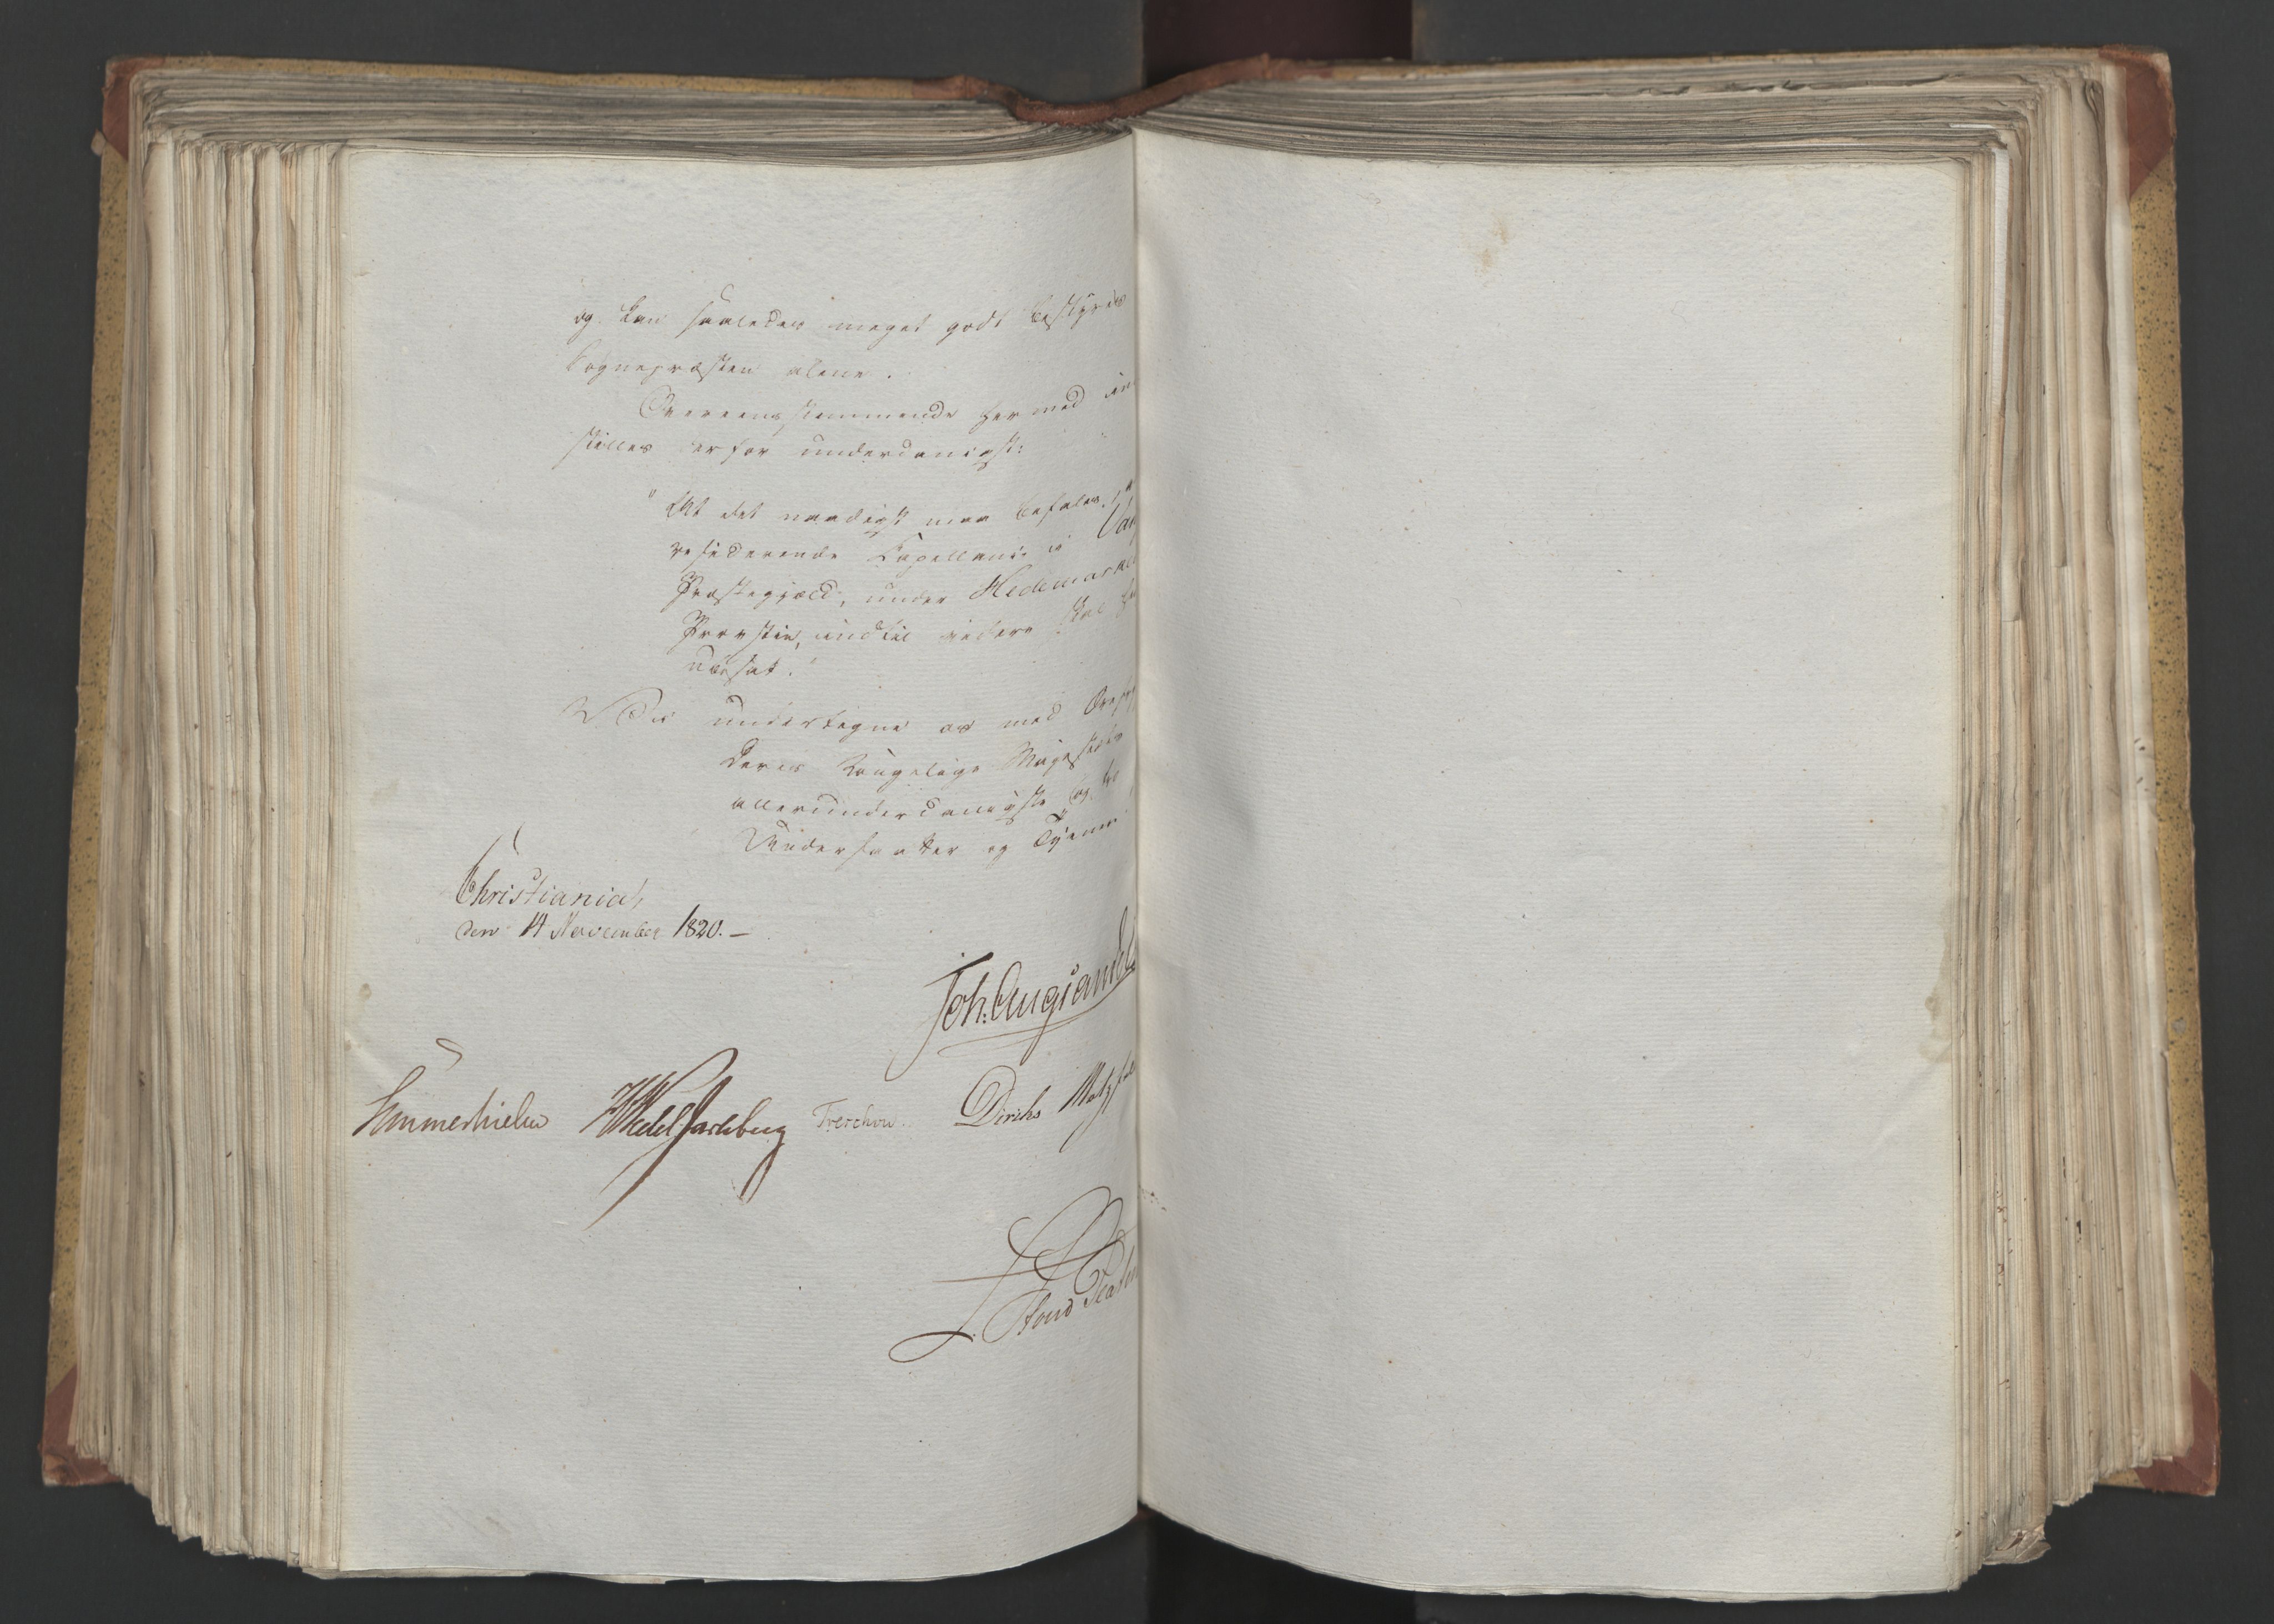 og kan saaledes meget godt bestyres
Sognepræsten alene.
Overeensstemmende hermed ind
stilles derfor underdanigst:
"At det naadigst maa befales, at
residerende Capellanie i Vang
Præstegjæld, under Hedemarkens
Provstie, indtil videre skal
ubesat."
Vi undertegne os med
Deres Kongelige Majestæts
allerunderdanigste og
Undersaatter og Tjenere
Christiania,
den 14 November 1820. –
Joh: Aug: Sandels
Sommerhielm HWedel Jarlsberg Treschow. Diriks Motzfeldt